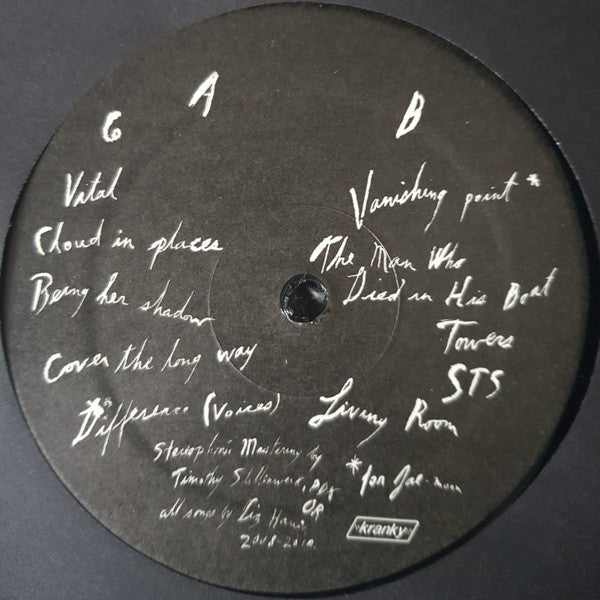 A
B
6
Vital
Cloud in places
Being her shadow
Cover the long way
*Difference (Voices)
Vanishing point *
The Man Who
Died in His Boat
Towers
STS
Living Room
Stereophonic Mastering by
Timothy Stollenwerk, PDX
OR
all songs by Liz Harris
2008-2010
*for Jae-
kranky